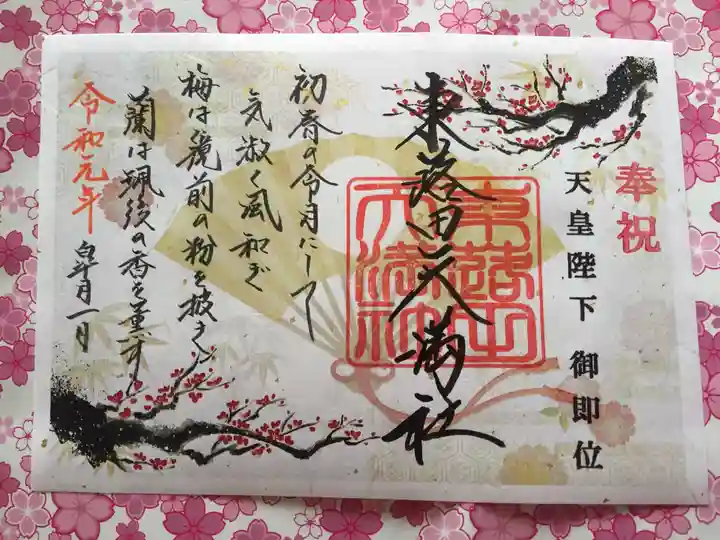 奉祝
天皇陛下御即位
東蕗田天満社
初春の令月にして
気淑く風和ぎ
梅は鏡前の粉を披き
蘭は珮後の香を薫す
令和元年
皐月一日